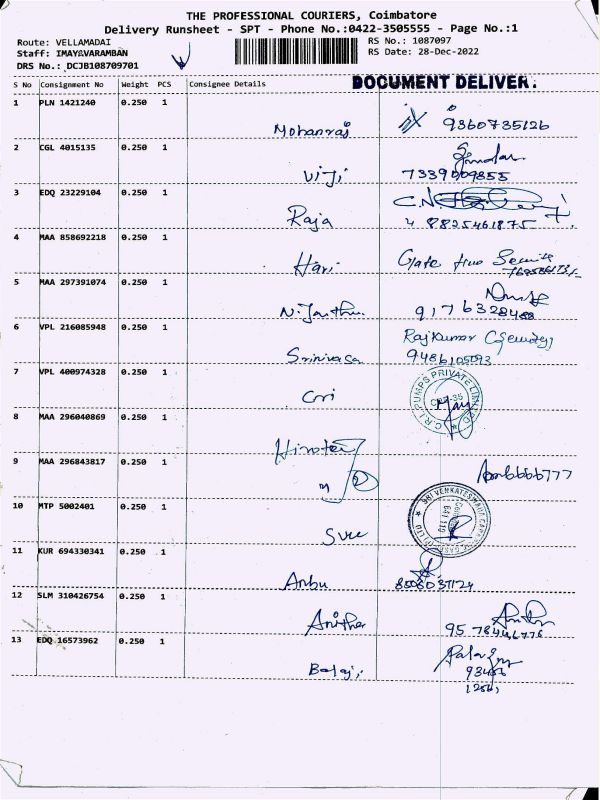 THE PROFESSIONAL COURIERS, Coimbatore
Delivery Runsheet - SPT - Phone No.:0422-3505555 - Page No.:1
Route: VELLAMADAI
RS No.: 1087097
Staff: IMAYAVARAMBAN
RS Date: 28-Dec-2022
DRS No.: DCJB108709701
S No Consignment No Weight PCS Consignee Details
DOCUMENT DELIVER.
1 PLN 1421240 0.250 1
Mohanraj 9360735126
2 CGL 4015135 0.250 1
Viji 7339009855
3 EDQ 23229104 0.250 1
C.N.
Raja 8825461875
4 MAA 858692218 0.250 1
Hari Gate
5 MAA 297391074 0.250 1
9176328488
6 VPL 216085948 0.250 1
Rajkumar
Srinivasa 9486105093
7 VPL 400974328 0.250 1
C.R.I PUMPS PRIVATE LIMITED
Cri
8 MAA 296040869 0.250 1
9 MAA 296843817 0.250 1
10 MTP 5002401 0.250 1
SRI VENKATESHWARA
641 110
11 KUR 694330341 0.250 1
Anbu
12 SLM 310426754 0.250 1
Anitha
13 EDQ 16573962 0.250 1
Balaji